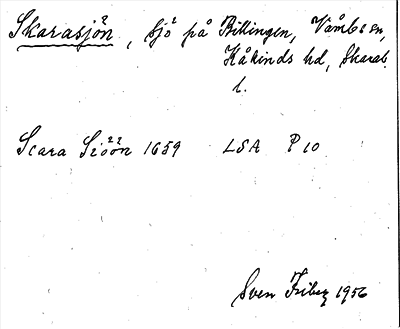 Skarasjön, sjö på Billingen, Våmb sn,
Kåkinds hd, Skarab.
l.
Scara Siöön 1659 LSA P 10
Sven Friberg 1956